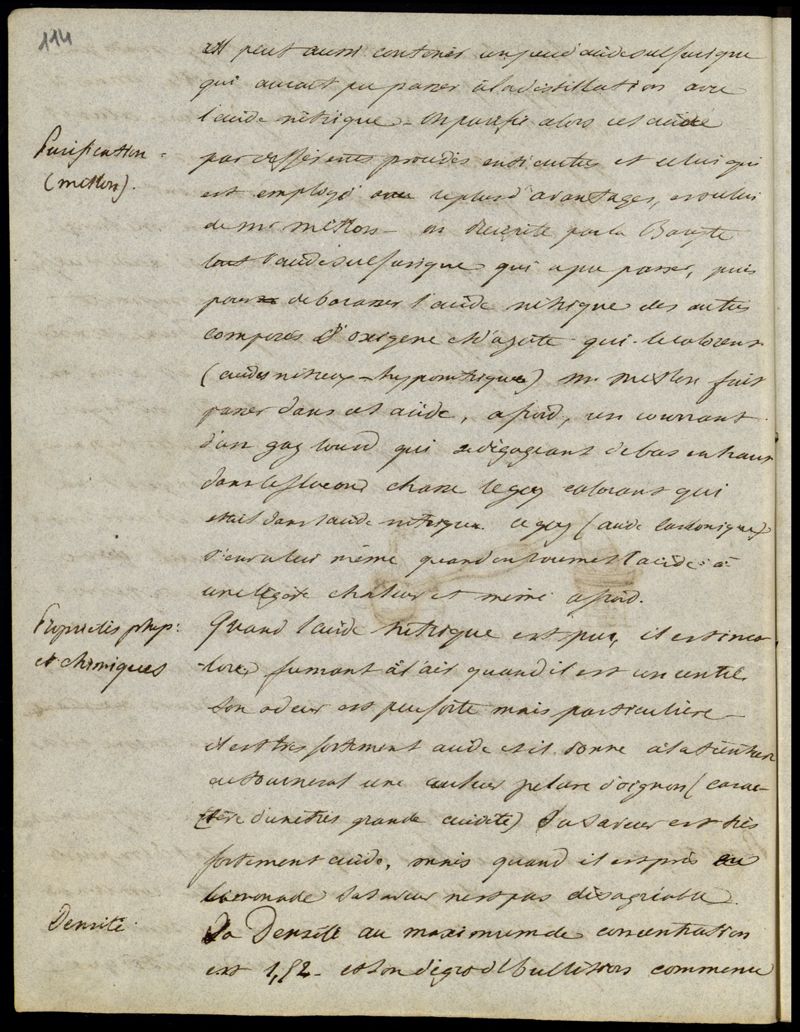 114
Il peut aussi contenir un peu d'acide sulfurique
qui aurait pu passer à la distillation avec
l'acide nitrique - on purifie alors cet acide
Purification -
(millon).
par différentes procédés entre autres et celui qui
est employé avec le plus d'avantages, est celui
de mr millon - on précipite par la Baryte
tout l'acide sulfurique qui a pu passer, puis
pour debarasser l'acide nitrique des autres
composés d'oxigene et d'azote qui le colorent
(acides nitreux - hypoazotique) mr millon fait
passer dans cet acide, a froid, un courrant
d'un gaz lourd qui se dégageant de bas en haut
dans le flacon chasse le gaz colorant qui
etait dans l'acide nitrique. ce gaz (acide carbonique)
même quand on soumet l'acide à
une légère chaleur et même a froid.
Proprietés phys:
et chimiques
Quand l'acide nitrique est pur, il est inco-
lore, fumant à l'air quand il est concentré
son odeur est peu forte mais particulière -
il est très fortement acide et il donne a la teinture
de tournesol une couleur pelure d'oignon (carac-
tère d'une très grande acidité) Sa saveur est très
fortement acide, mais quand il est pris en
limonade sa saveur n'est pas désagréable.
Densité.
Sa Densité au maximum de concentration
est 1,52 - et son dégré d'ébullition commence